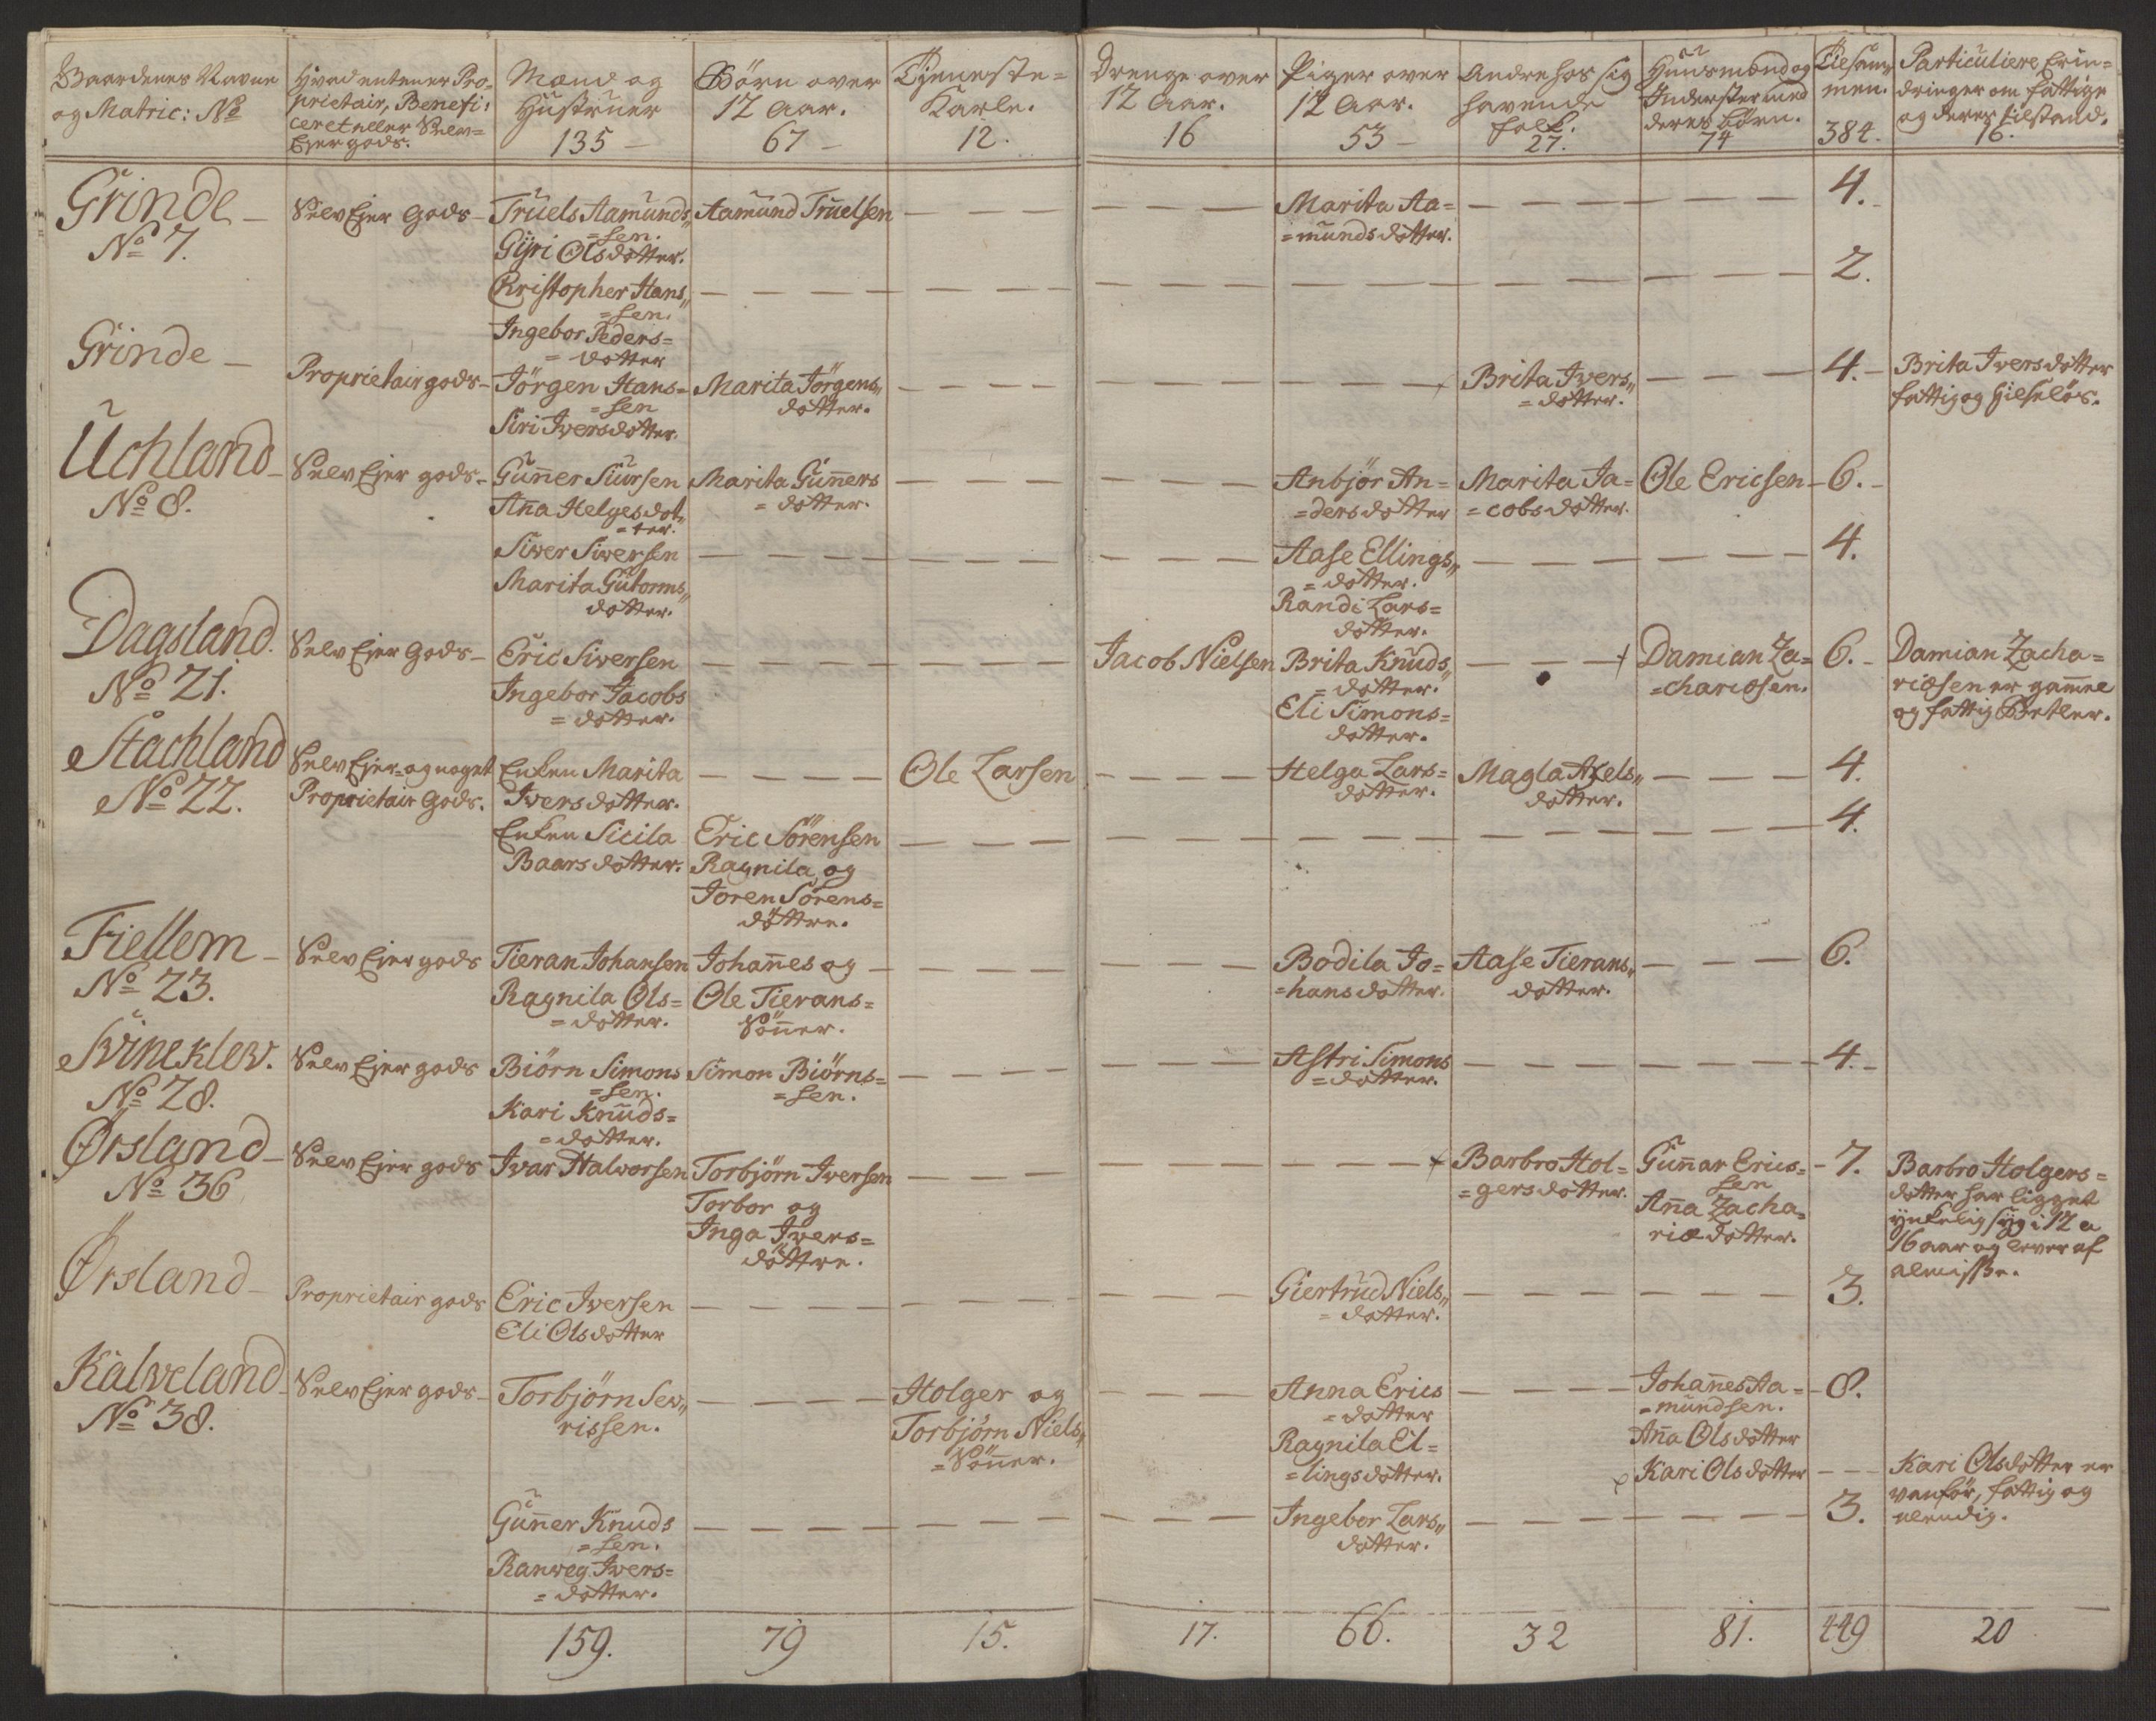 Gaardenes Navne
og Matric: No
Hvad enten er Pro-
prietair, Benefi:
ceret eller Selv=
Ejer gods.
Mænd og
Hustruer
135
Børn over
12 Aar.
67
Tjeneste=
Karle.
12.
Drenge over
12 Aar.
16
Piger over
12 Aar.
53
Andre hos sig
havende
folk.
27.
Huusmænd og
Inderster med
deres børn.
74
Tilsam-
men.
384.
Particuliere Erin=
dringer om fattige
og deres tilstand.
16.
Grinde
No 7.
Selv Ejer Gods
Truels Aamunds„
=sen.
Gyri Olsdotter.
Aamund Truelsen
Marita Aa=
=munds dotter.
4.
Christopher Hans„
=sen.
Ingebor Peders=
=dotter
2.
Grinde
Proprietair gods
Jörgen Hans=
=sen
Siri Iversdotter.
Marita Jörgens„
dotter.
Brita Ivers„
=dotter.
4.
Brita Iversdotter
fattig og hielpløs.
Uchland
No 8.
Selv Ejer gods
Guñer Siursen
Ana Helgesdot„
=ter.
Marita Guñers
=dotter.
Anbjör An=
=dersdotter
Marita Ja=
=cobsdotter.
Ole Ericsen
6.
Siver Siversen
Marita Gutorms„
dotter.
Aase Ellings„
=dotter.
Randi Lars=
dotter.
4.
Dagsland.
No 21.
Selv Ejer Gods
Eric Siversen
Ingebor Jacobs
=dotter.
Jacob Nielsen
Brita Knuds„
=dotter.
Eli Simons=
dotter.
Damian Za=
=chariæsen.
6.
Damian Zacha=
riæsen er gam̃el
og fattig Betler.
Stachland
No 22.
Selv Ejer= og noget
Proprietair Gods.
Enken Marita
Iversdotter.
Ole Larsen
Helga Lars=
dotter.
Magla Axels„
dotter.
4.
Enken Sicila
Baarsdotter.
Eric Sörensen
Ragnila og
Joren Sörens=
döttre.
4.
Fiellem
No 23.
Selv Ejer gods
Tieran Johansen
Ragnila Ols=
=dotter.
Johañes og
Ole Tierans=
Söñer.
Bodila Jo=
=hansdotter.
Aase Tierans„
dotter.
6.
Svineklev.
No 28.
Selv Ejer gods
Biörn Simons
=sen.
Kari Knuds=
=dotter.
Simon Biörns=
=sen.
Astri Simons
=dotter.
4.
Ørsland
No 36
Selv Ejer gods
Ivar Halvorsen
Torbjörn Iversen
Torbor og
Inga Ivers=
döttre.
Barbro Hol=
=gersdotter.
Guñar Erics=
sen
Aña Zacha=
riædotter.
7.
Barbro Holgers=
dotter har ligget
ynkelig syg i 12 a
16 aar og lever af
almisse.
Ørsland
Proprietair gods
Eric Iversen
Eli Olsdotter
Giertrud Niels„
=dotter.
3.
Kalveland
No 38.
Selv Ejer gods
Torbjörn Sev„
rissen.
Holger og
Torbjörn Niels„
=Söñer.
Anna Erics
=dotter
Ragnila El=
=lingsdotter.
Johañes Aa=
=mundsen.
Aña Olsdotter
Kari Olsdotter
8.
Kari Olsdotter er
vanför, fattig og
elendig.
Guñer Knuds
=sen.
Ranveg Ivers=
=dotter.
Ingebor Lars„
dotter.
3.
159.
79
15.
17.
66.
32
81.
449
20